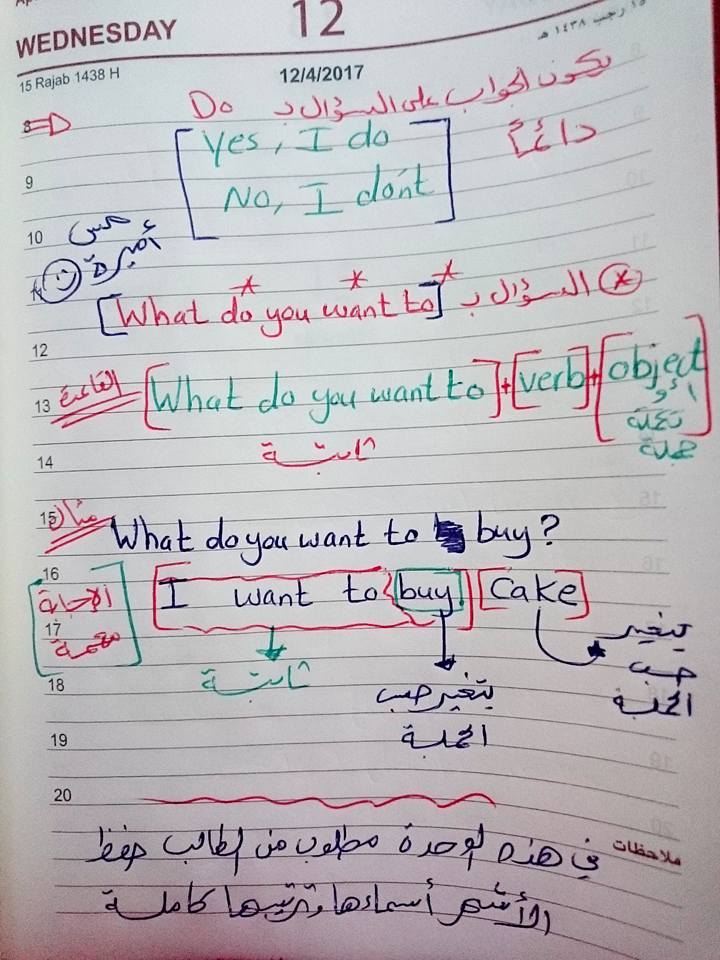 WEDNESDAY 12
15 Rajab 1438 H 12/4/2017 ١٥ رجب ١٤٣٨ هـ
8 يكون الجواب على السؤال بـ Do
دائماً
Yes, I do
9
No, I don't
10
أميرة
11
[What do you want to] السؤال بـ
12
13 القاعدة [What do you want to] + [verb] + [object
أو
تكملة
جملة]
14 ثابتة
15 مثال What do you want to buy?
16 I want to buy [Cake]
الإجابة
17 مهمة
ثابتة
يتغير حسب
الجملة
يتغير
حسب
الجملة
18
19
20
ملاحظات
في هذه الوحدة مطلوب من الطالب حفظ
الأشهر أسماءها وترتيبها كاملة